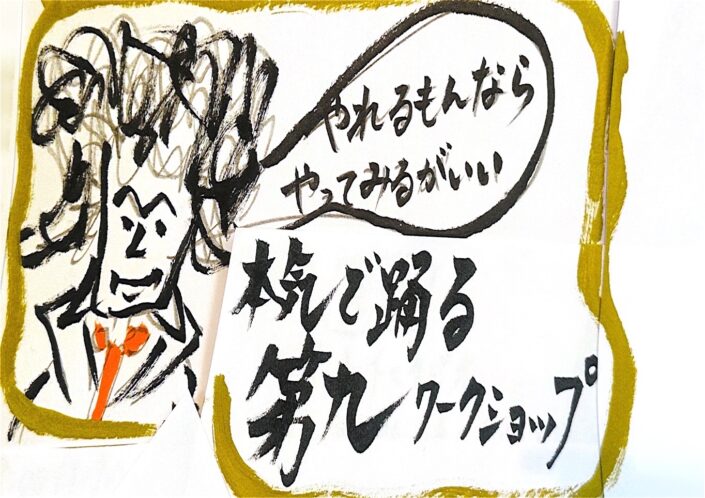 やれるもんなら
やってみるがいい
本気で踊る
第九ワークショップ